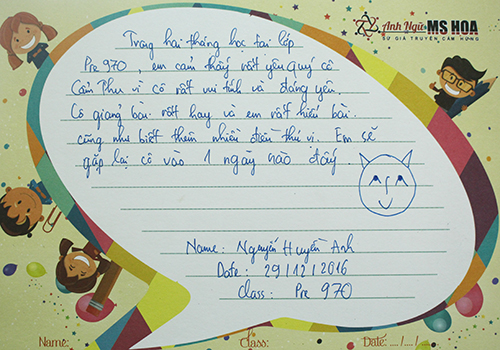 Anh Ngữ MS HOA
SỨ GIẢ TRUYỀN CẢM HỨNG
Trong hai tháng học tại lớp
Pre 970, em cảm thấy rất yêu quý cô
Cẩm Phu vì cô rất vui tính và đáng yêu.
Cô giảng bài rất hay và em rất hiểu bài.
cũng như biết thêm nhiều điều thú vị. Em sẽ
gặp lại cô vào 1 ngày nào đấy.
Name: Nguyễn Huyền Anh
Date: 29/12/2016
Class: Pre 970
Name: Class: Date: ..../..../....